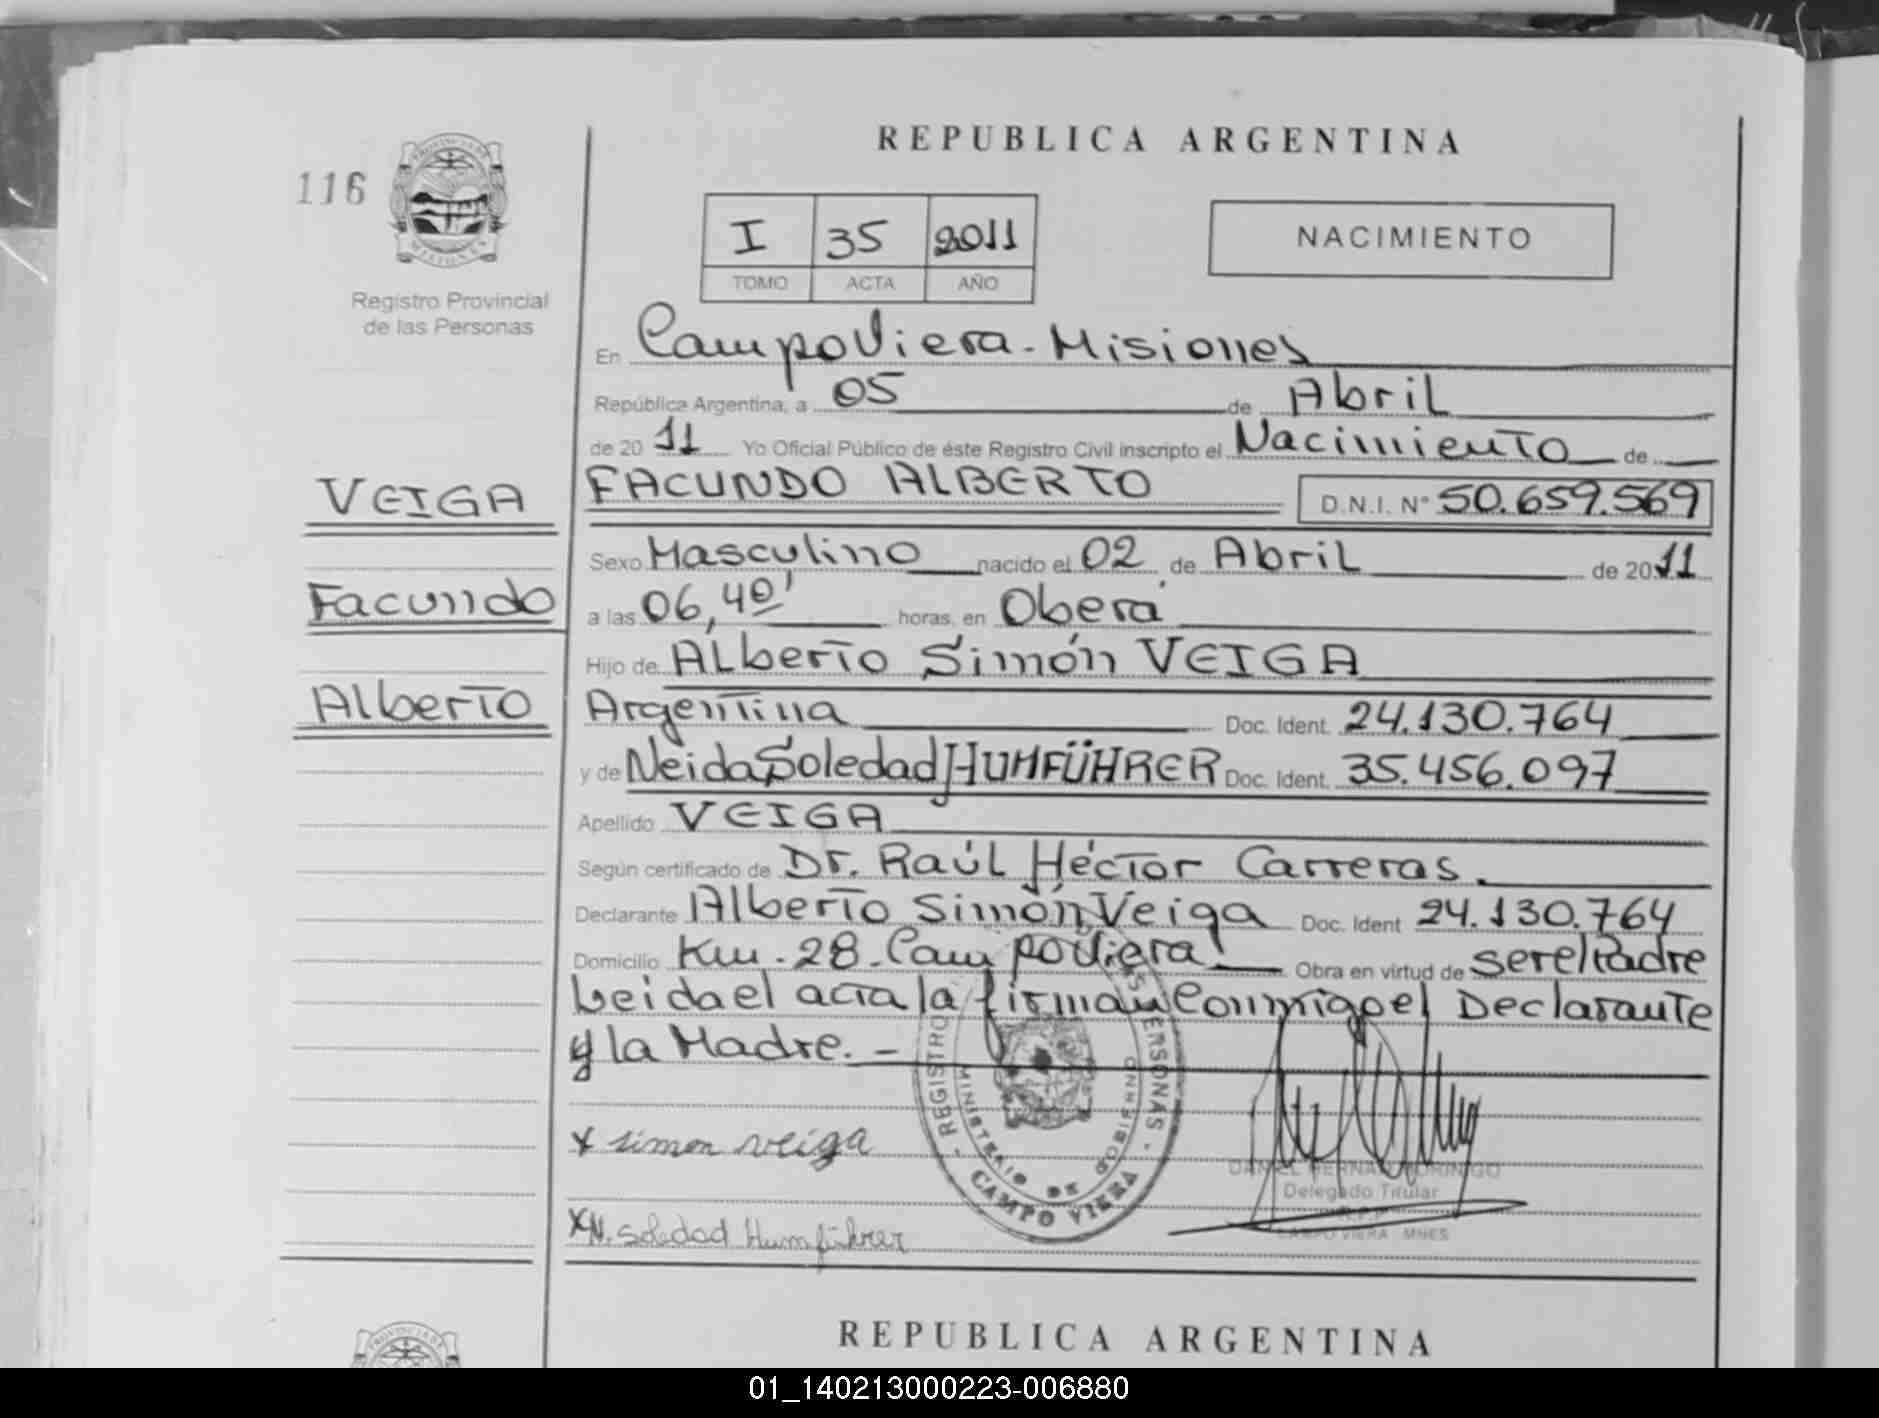 116
Registro Provincial
de las Personas
VEIGA
Facundo
Alberto
REPUBLICA ARGENTINA
I 35 2011
TOMO ACTA AÑO
NACIMIENTO
En Campo Viera - Misiones
República Argentina, a 05 de Abril
de 2011 Yo Oficial Público de éste Registro Civil inscripto el Nacimiento de
FACUNDO ALBERTO D.N.I. N° 50.659.569
Sexo Masculino nacido el 02 de Abril de 2011
a las 06,40' horas, en Oberá
Hijo de Alberto Simón VEIGA
Argentina Doc. Ident. 24.130.764
y de Neida Soledad HUMFÜHRER Doc. Ident. 35.456.097
Apellido VEIGA
Según certificado de Dr. Raúl Héctor Carreras.
Declarante Alberto Simón Veiga Doc. Ident 24.130.764
Domicilio Km. 28. Campo Viera Obra en virtud de ser el Padre
Leida el acta la firman Conmigo el Declarante
y la Madre. -
x simon veiga
x N. Soledad Humführer
REGISTRO PERSONAS - MINISTERIO DE GOBIERNO
CAMPO VIERA
Delegado Titular
CAMPO VIERA MNES
REPUBLICA ARGENTINA
01_140213000223-006880